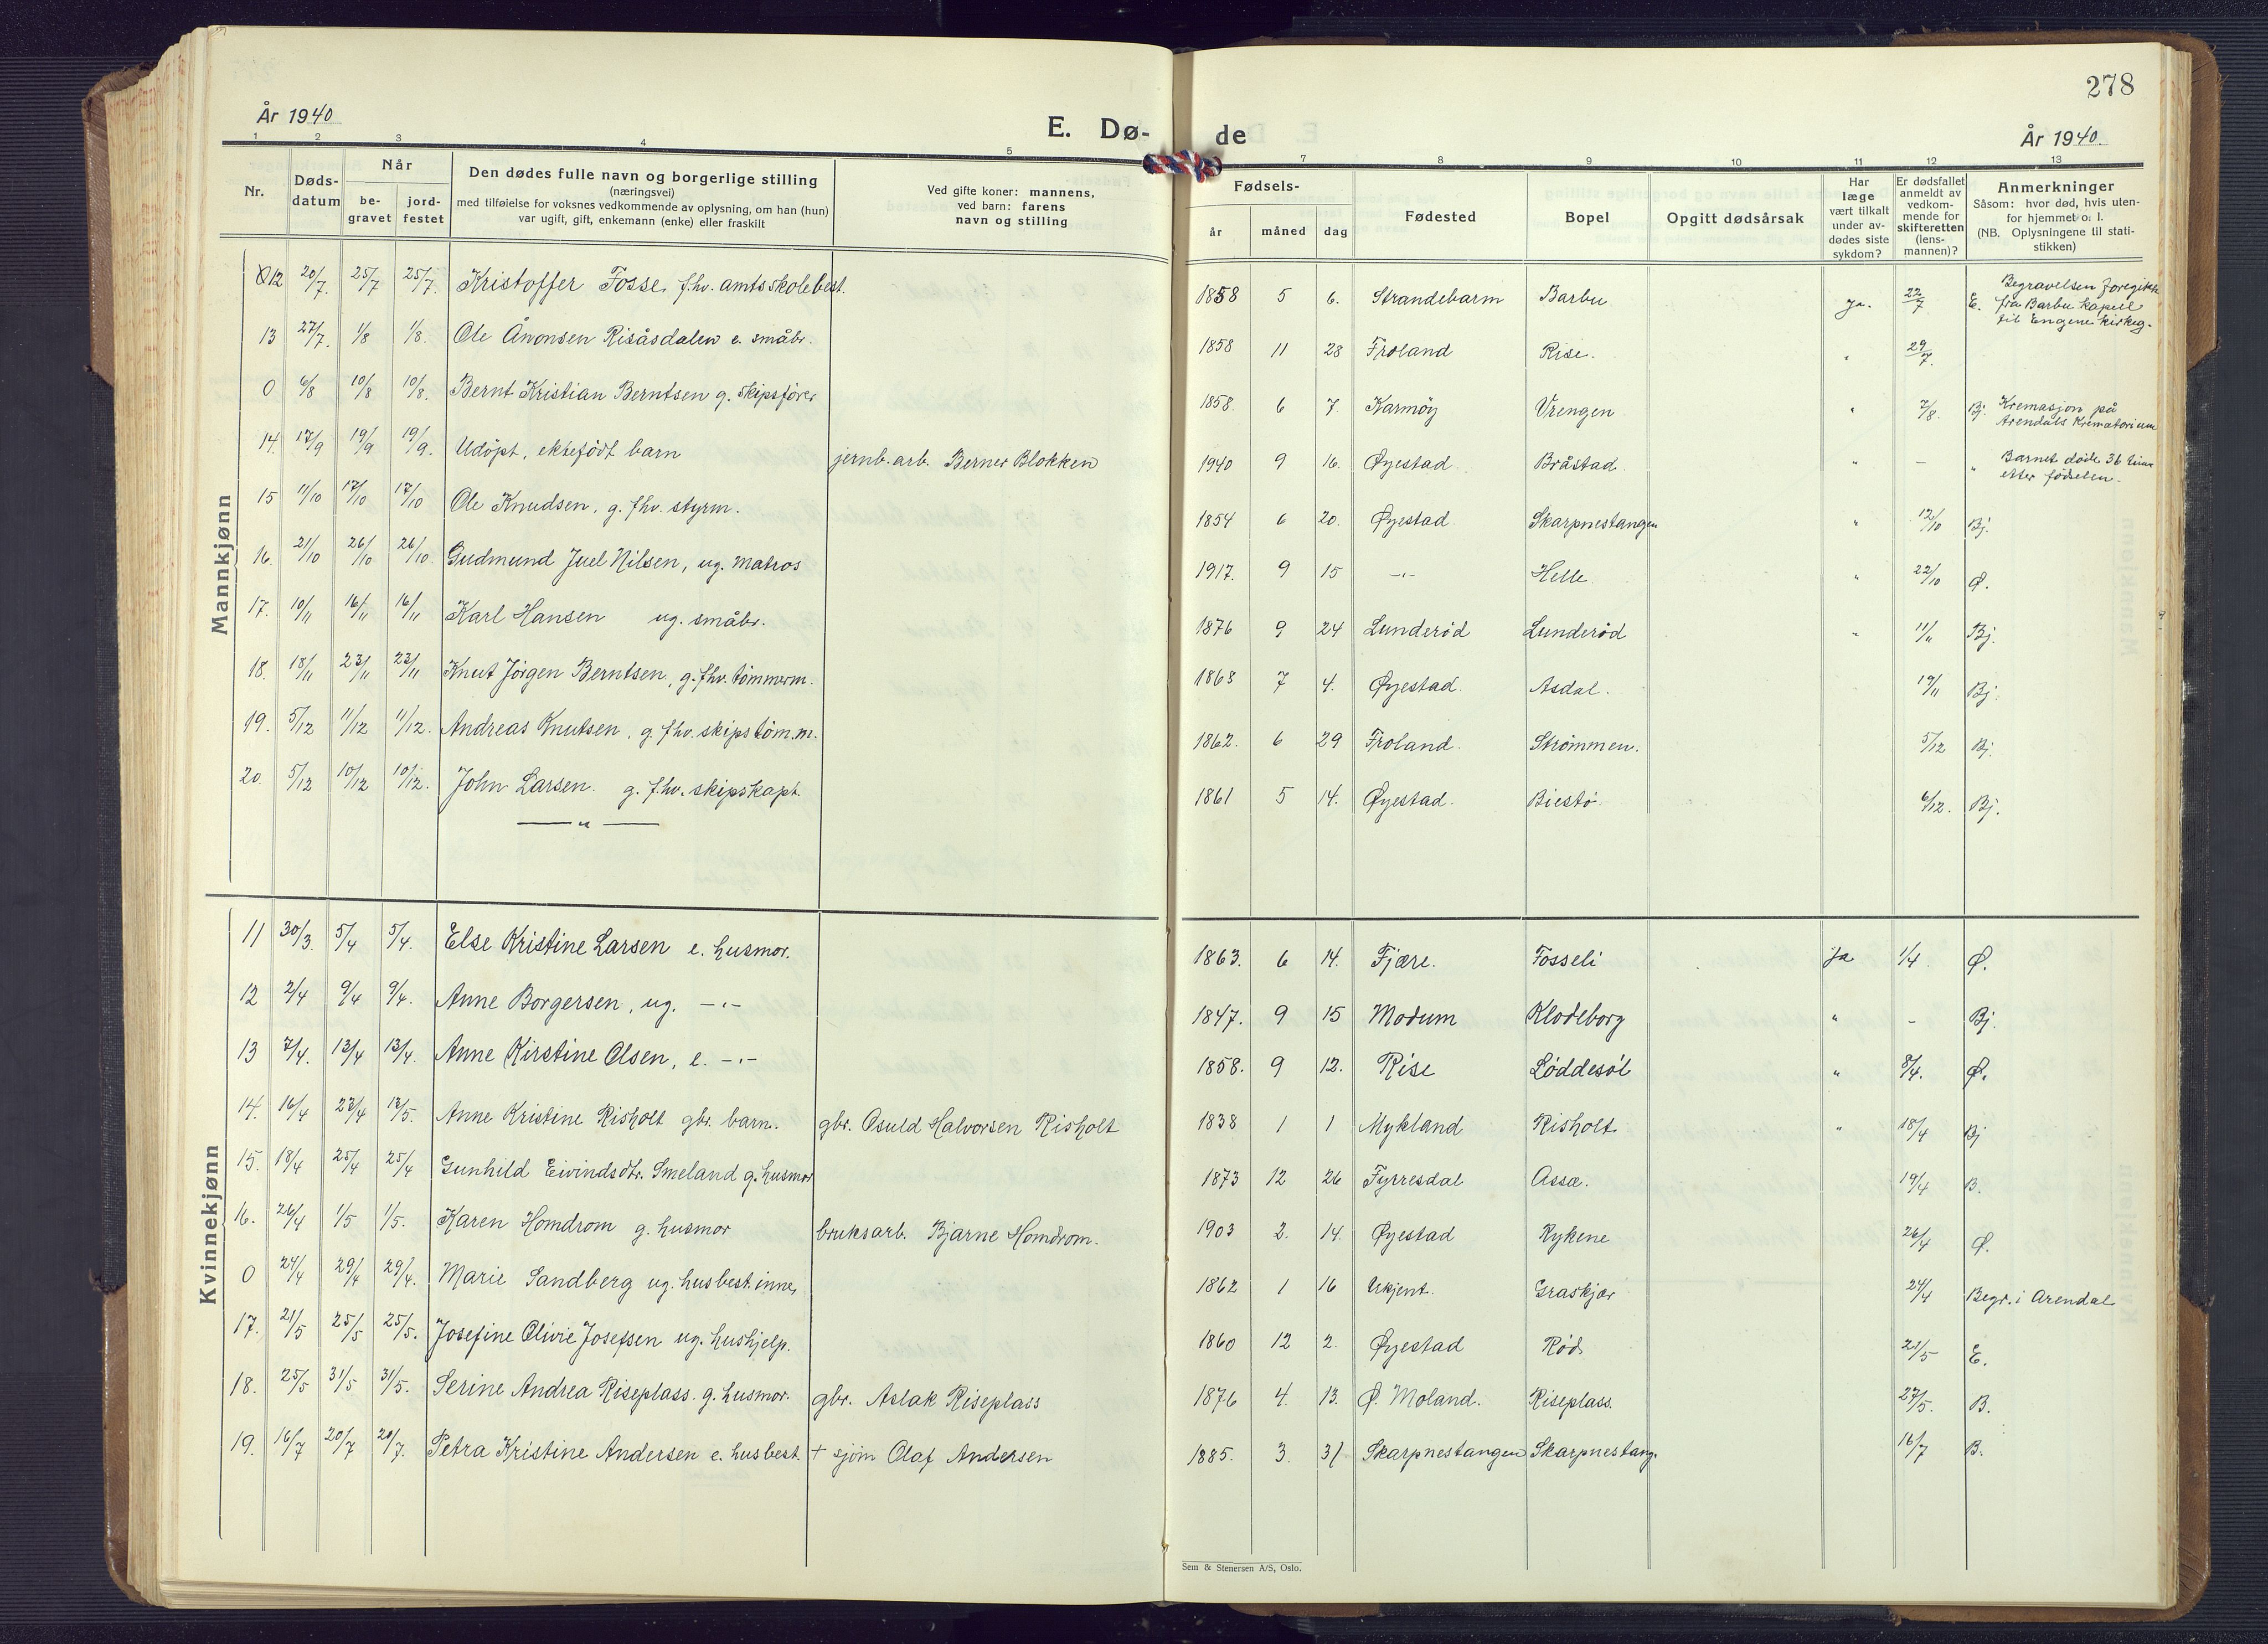 278
År 1940
E. Dø-
de
År 1940.
1 2 3 4 5 7 8 9 10 11 12 13
Nr.
Døds-
datum
Når
be-
gravet
jord-
festet
Den dødes fulle navn og borgerlige stilling
(næringsvei)
med tilføielse for voksnes vedkommende av oplysning, om han (hun)
var ugift, gift, enkemann (enke) eller fraskilt
Ved gifte koner: mannens,
ved barn: farens
navn og stilling
Fødsels-
år måned dag
Fødested
Bopel
Opgitt dødsårsak
Har
læge
vært tilkalt
under av-
dødes siste
sykdom?
Er dødsfallet
anmeldt av
vedkom-
mende for
skifteretten
(lens-
mannen)?
Anmerkninger
Såsom: hvor død, hvis uten-
for hjemmet o. l.
(NB. Oplysningene til stati-
stikken)
Mannkjønn
12 20/7. 25/7 25/7. Kristoffer Fosse, f.hv. amtsskolebest. 1858 5 6. Strandebarm Barbu Ja. 22/7 E. Begravelsen foregikk
fra Barbu kapell
til Engene kirkeg.
13 27/7. 1/8 1/8. Ole Ånonsen Risåsdalen e. småbr. 1858 11 28 Froland Rise. " 29/7.
0 6/8 10/8 10/8. Bernt Kristian Berntsen g. skipsfører 1858. 6 7 Karmöy Vrengen " 7/8. Bj. Kremasjon på
Arendals Krematorium
14. 17/9 19/9 19/9. Udöpt, ektefödt barn jernb. arb. Berner Blokken 1940 9 16. Øyestad Bråstad " - " Barnet døde 36 timer
etter fødselen.
15 11/10 17/10 17/10 Ole Knudsen, g. fhv. styrm. 1854 6 20. Øyestad Skarpnestangen " 12/10 Bj.
16. 21/10 26/10 26/10 Gudmund Juel Nilsen, ug. matros 1917. 9 15 -"- Helle " 22/10 Ø.
17. 10/11 16/11 16/11 Karl Hansen ug. småbr. 1876 9 24 Lunderöd Lunderöd " 11/11 Bj.
18. 18/11 23/11 23/11 Knut Jörgen Berntsen, g. fhv. tömmerm. 1863 7 4. Øyestad. Asdal. 19/11 Bj.
19. 5/12 11/12 11/12. Andreas Knutsen, g. fhv. skipstöm.m. 1862. 6 29 Froland. Strömmen. 5/12 Bj.
20. 5/12 10/12 10/12. John Larsen. g. fhv. skipskapt. 1861 5 14. Øyestad. Biestö. 6/12. Bj.
— " —
Kvinnekjønn
11 30/3. 5/4 5/4. Else Kristine Larsen e. husmor. 1863. 6 14. Fjære. Fosseli Ja 1/4. Ø.
12 2/4 9/4 9/4. Anne Borgersen, ug. -"- 1847. 9 15 Modum Klodeborg " - Bj.
13 7/4. 13/4 13/4. Anne Kirstine Olsen, e. -"- 1858. 9 12. Rise Löddesöl " 8/4. Ø.
14. 16/4 23/4 13/5. Anne Kristine Risholt gbr. barn. gbr. Osuld Halvorsen Risholt 1838 1 1 Mykland Risholt " 18/4 Bj
15. 18/4 25/4 25/4 Gunhild Eivindsdtr. Smeland g. husmor 1873 12 26 Fyrresdal Assæ. 19/4 B.
16. 26/4 1/5 1/5. Karen Homdrom g. husmor bruksarb. Bjarne Homdrom. 1903 2. 14. Øyestad Rykene 26/4 Ø.
0 24/4 29/4 29/4. Marie Sandberg ug. husbest.inne, 1862 1 16 Ukjent. Graskjær 24/4 Begr. i Arendal
17. 21/5 25/5 25/5. Josefine Olivie Josefsen ug. hushjelp. 1860 12 2. Øyestad Röd 21/5 E.
18. 25/5 31/5 31/5. Serine Andrea Riseplass. g. husmor. gbr. Aslak Riseplass 1876 4. 13. Ø. Moland. Riseplass. 27/5. B.
19. 16/7 20/7 20/7. Petra Kristine Andersen e. husbest. + sjöm Olaf Andersen 1885. 3. 31 Skarpnestangen Skarpnestang. 16/7 B.
Sem & Stenersen A/S, Oslo.